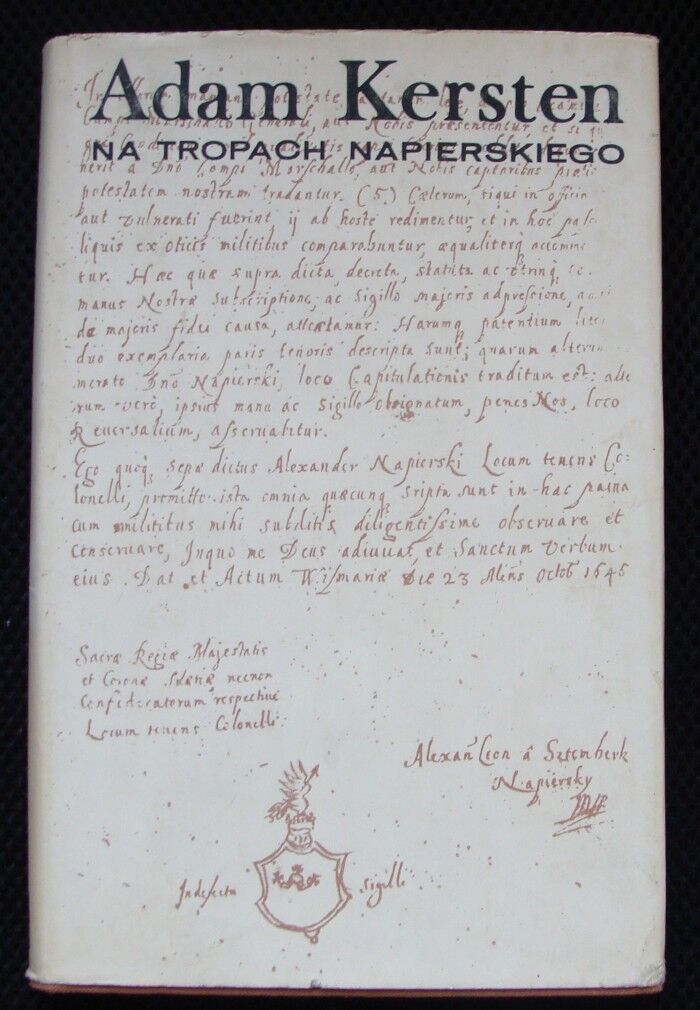 Adam Kersten
NA TROPACH NAPIERSKIEGO
nerit à Dno Campi Marschallo, aut Nobis captoribus
potestatem nostram tradantur. (5) Cæterum, siqui in officio
aut vulnerati fuerint, ij ab hoste redimentur, et in hoc
liquis ex oticis militibus comparabuntur, æqualiterq
tur. Hæc quæ supra dicta, decreta, statuta ac
manus Nostræ Subscriptione, ac Sigillo majoris adpressione,
de majoris fidei causa, Harumq patentium
duo exemplaria paris tenoris descripta sunt; quorum
Dno Napierski, loco Capitulationis traditum est: alte
rum verò, ipsius manu ac Sigillo obsignatum, penes Nos, loco
Reversalium, asservabitur.
Ego quoq sepe dictus Alexander Napierski Locum tenens Co-
lonelli, promitto ista omnia quæcunq sripta sunt in hac
cum militibus mihi subditis diligentissime observare et
conservare, Inquo me Deus adiuvat, et Sanctum Verbum
eius. Dat et Actum Wismariæ Die 23 Mens Octob 1645
Sacræ Regiæ Majestatis
et Coronæ Suætiæ necnon
Confœderatorum respective
Locum tenens Colonelli
Alexan Leon â Sztemberk
Napiersky
Indefectu Sigilli